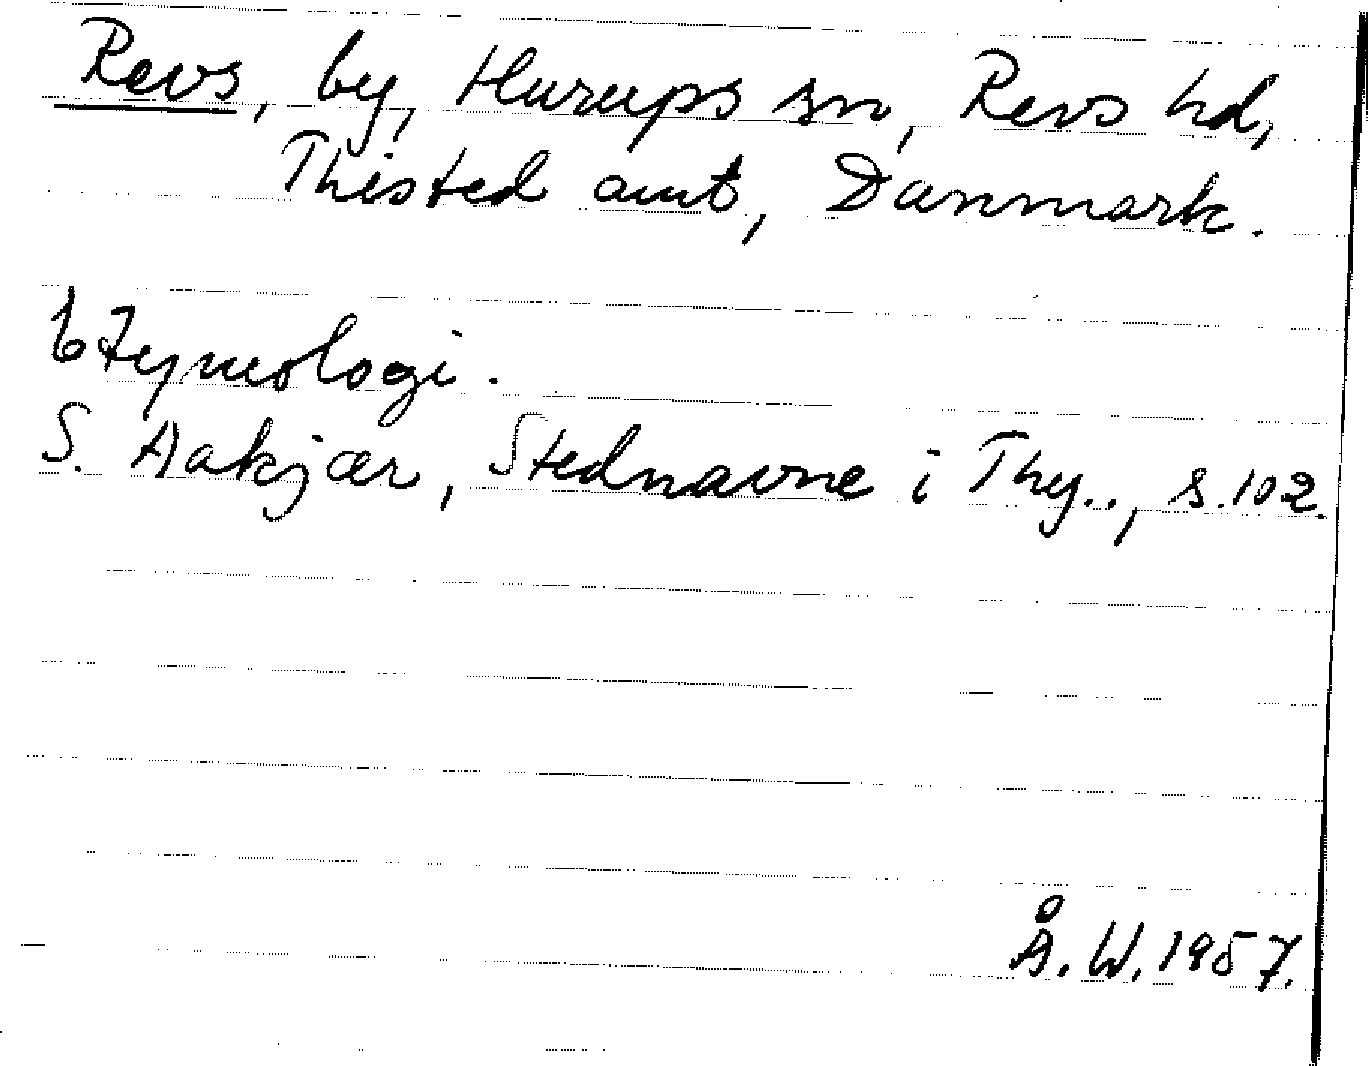 Revs, by, Hurups sn, Revs hd,
Thisted amt, Danmark.
Etymologi.
S. Aakjær, Stednavne i Thy.., s. 102.
Å. W. 1957.